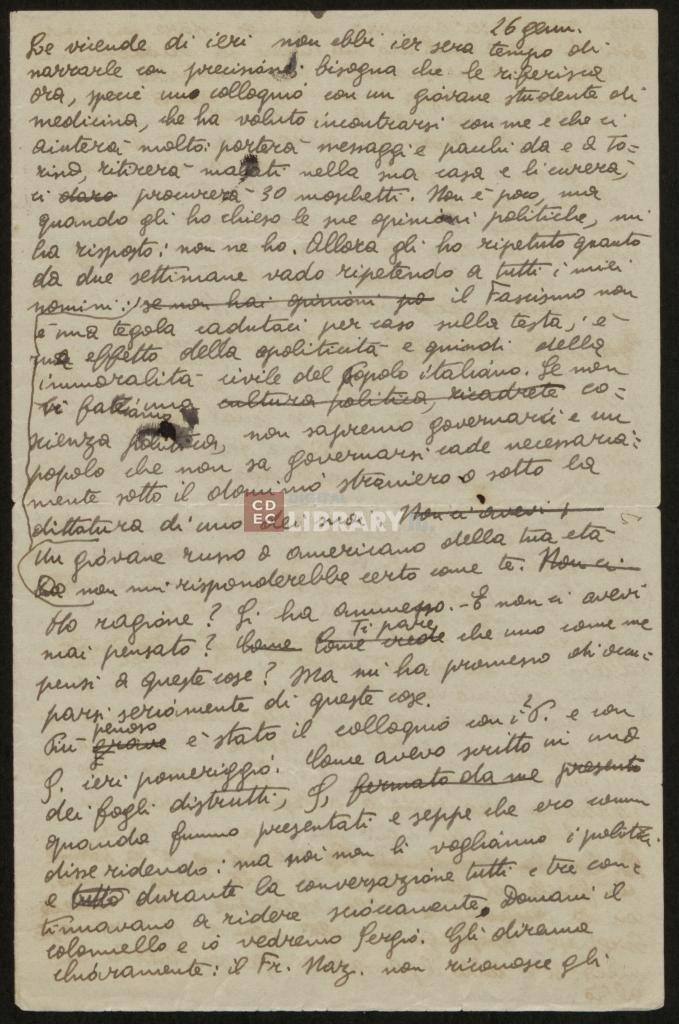 26 genn.
Le vicende di ieri non ebbi ier sera tempo di
narrarle con precisione; bisogna che le riferisca
ora, specie un colloquio con un giovane studente di
medicina, che ha voluto incontrarsi con me e che ci
aiuterà molto: porterà messaggi e pacchi da e a To=
rino, ritirerà malati nella sua casa e li curerà,
ci daro procurerà 30 moschetti. Non è poco, ma
quando gli ho chieso le sue opinioni politiche, mi
ha risposto: non ne ho. Allora gli ho ripetuto quanto
da due settimane vado ripetendo a tutti i miei
uomini: se non hai opinioni po il Fascismo non
è una tegola cadutaci per caso sulla testa; è
effetto della apoliticità e quindi della
immoralità civile del popolo italiano. Se non
ci facciamo una cultura politica, ricadrete co=
scienza politica, non sapremo governarci e un
popolo che non sa governarsi cade necessaria=
mente sotto il dominio straniero o sotto la
dittatura di uno dei suoi. Non ci avevi
Un giovane russo o americano della tua età
non mi risponderebbe certo come te. Non ci
Ho ragione? Li ha ammesso. - E non ci avevi
mai pensato? Come Come crede Ti pare che uno come me
pensi a queste cose? Ma mi ha promesso di occu=
parsi seriamente di queste cose.
Più grave penoso è stato il colloquio con i 2 P. e con
S. ieri pomeriggio. Come avevo scritto in uno
dei fogli distrutti, S, fermato da me presento
quando fummo presentati e seppe che ero comm
disse ridendo: ma noi non li vogliamo i politi.
e tutto durante la conversazione tutti e tre con=
tinuavano a ridere scioccamente. Domani il
colonnello e io vedremo Sergio. Gli diremo
chiaramente: il Fr. Naz. non riconosce gli
CDEC DIGITAL LIBRARY